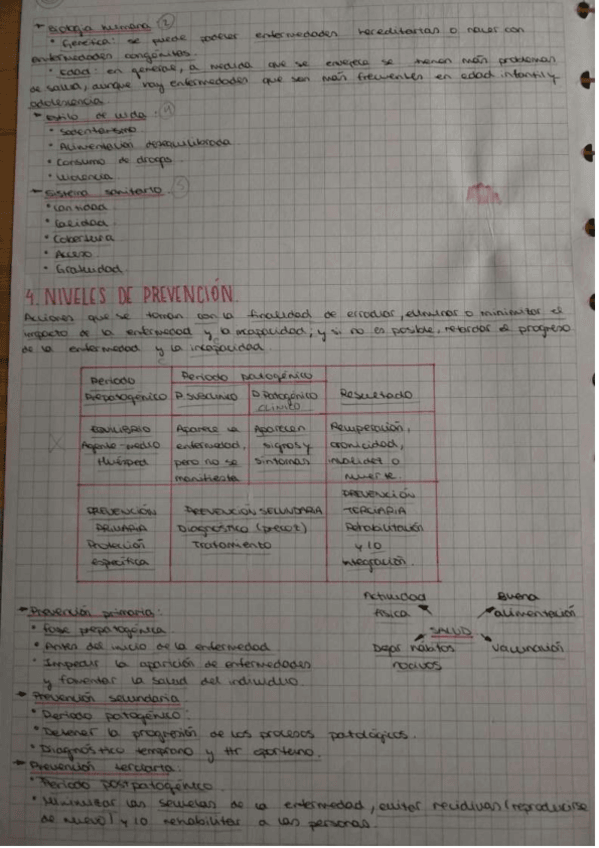 → Biología humana. (2)
• Genética: se puede padecer enfermedades hereditarias o nacer con
enfermedades congénitas.
• Edad: en general, a medida que se envejece se tienen más problemas
de salud, aunque hay enfermedades que son más frecuentes en edad infantil y
adolescencia.
→ Estilo de vida:
• Sedentarismo
• Alimentación desequilibrada
• Consumo de drogas
• Violencia.
→ Sistema sanitario.
• Cantidad.
• Calidad.
• Cobertura
• Acceso
• Gratuidad.
4. NIVELES DE PREVENCIÓN.
Acciones que se toman con la finalidad de erradicar, eliminar o minimizar el
impacto de la enfermedad y la incapacidad, y si no es posible, retardar el progreso
de la enfermedad y la incapacidad.
Periodo Prepatogénico
Periodo patogénico
P. Subclínico
P. Patogénico CLÍNICO
Resultado
EQUILIBRIO
Agente-medio
Huésped
Aparece la
enfermedad,
pero no se
manifiesta
Aparecen
signos y
síntomas
Recuperación,
cronicidad,
invalidez o
muerte.
PREVENCIÓN
PRIMARIA
Protección
específica
PREVENCIÓN SECUNDARIA
Diagnóstico (precoz)
Tratamiento
PREVENCIÓN
TERCIARIA
Rehabilitación
y/o
integración.
→ Prevención primaria:
• Fase prepatogénica
• Antes del inicio de la enfermedad
• Impedir la aparición de enfermedades
y fomentar la salud del individuo.
Actividad
física
Buena
alimentación
SALUD
Dejar hábitos
nocivos
Vacunación
→ Prevención secundaria
• Periodo patogénico:
• Detener la progresión de los procesos patológicos.
• Diagnóstico temprano y ttr oportuno.
→ Prevención terciaria.
• Periodo postpatogénico.
• Minimizar las secuelas de la enfermedad, evitar recidivas (reproducirse
de nuevo) y/o rehabilitar a las personas.